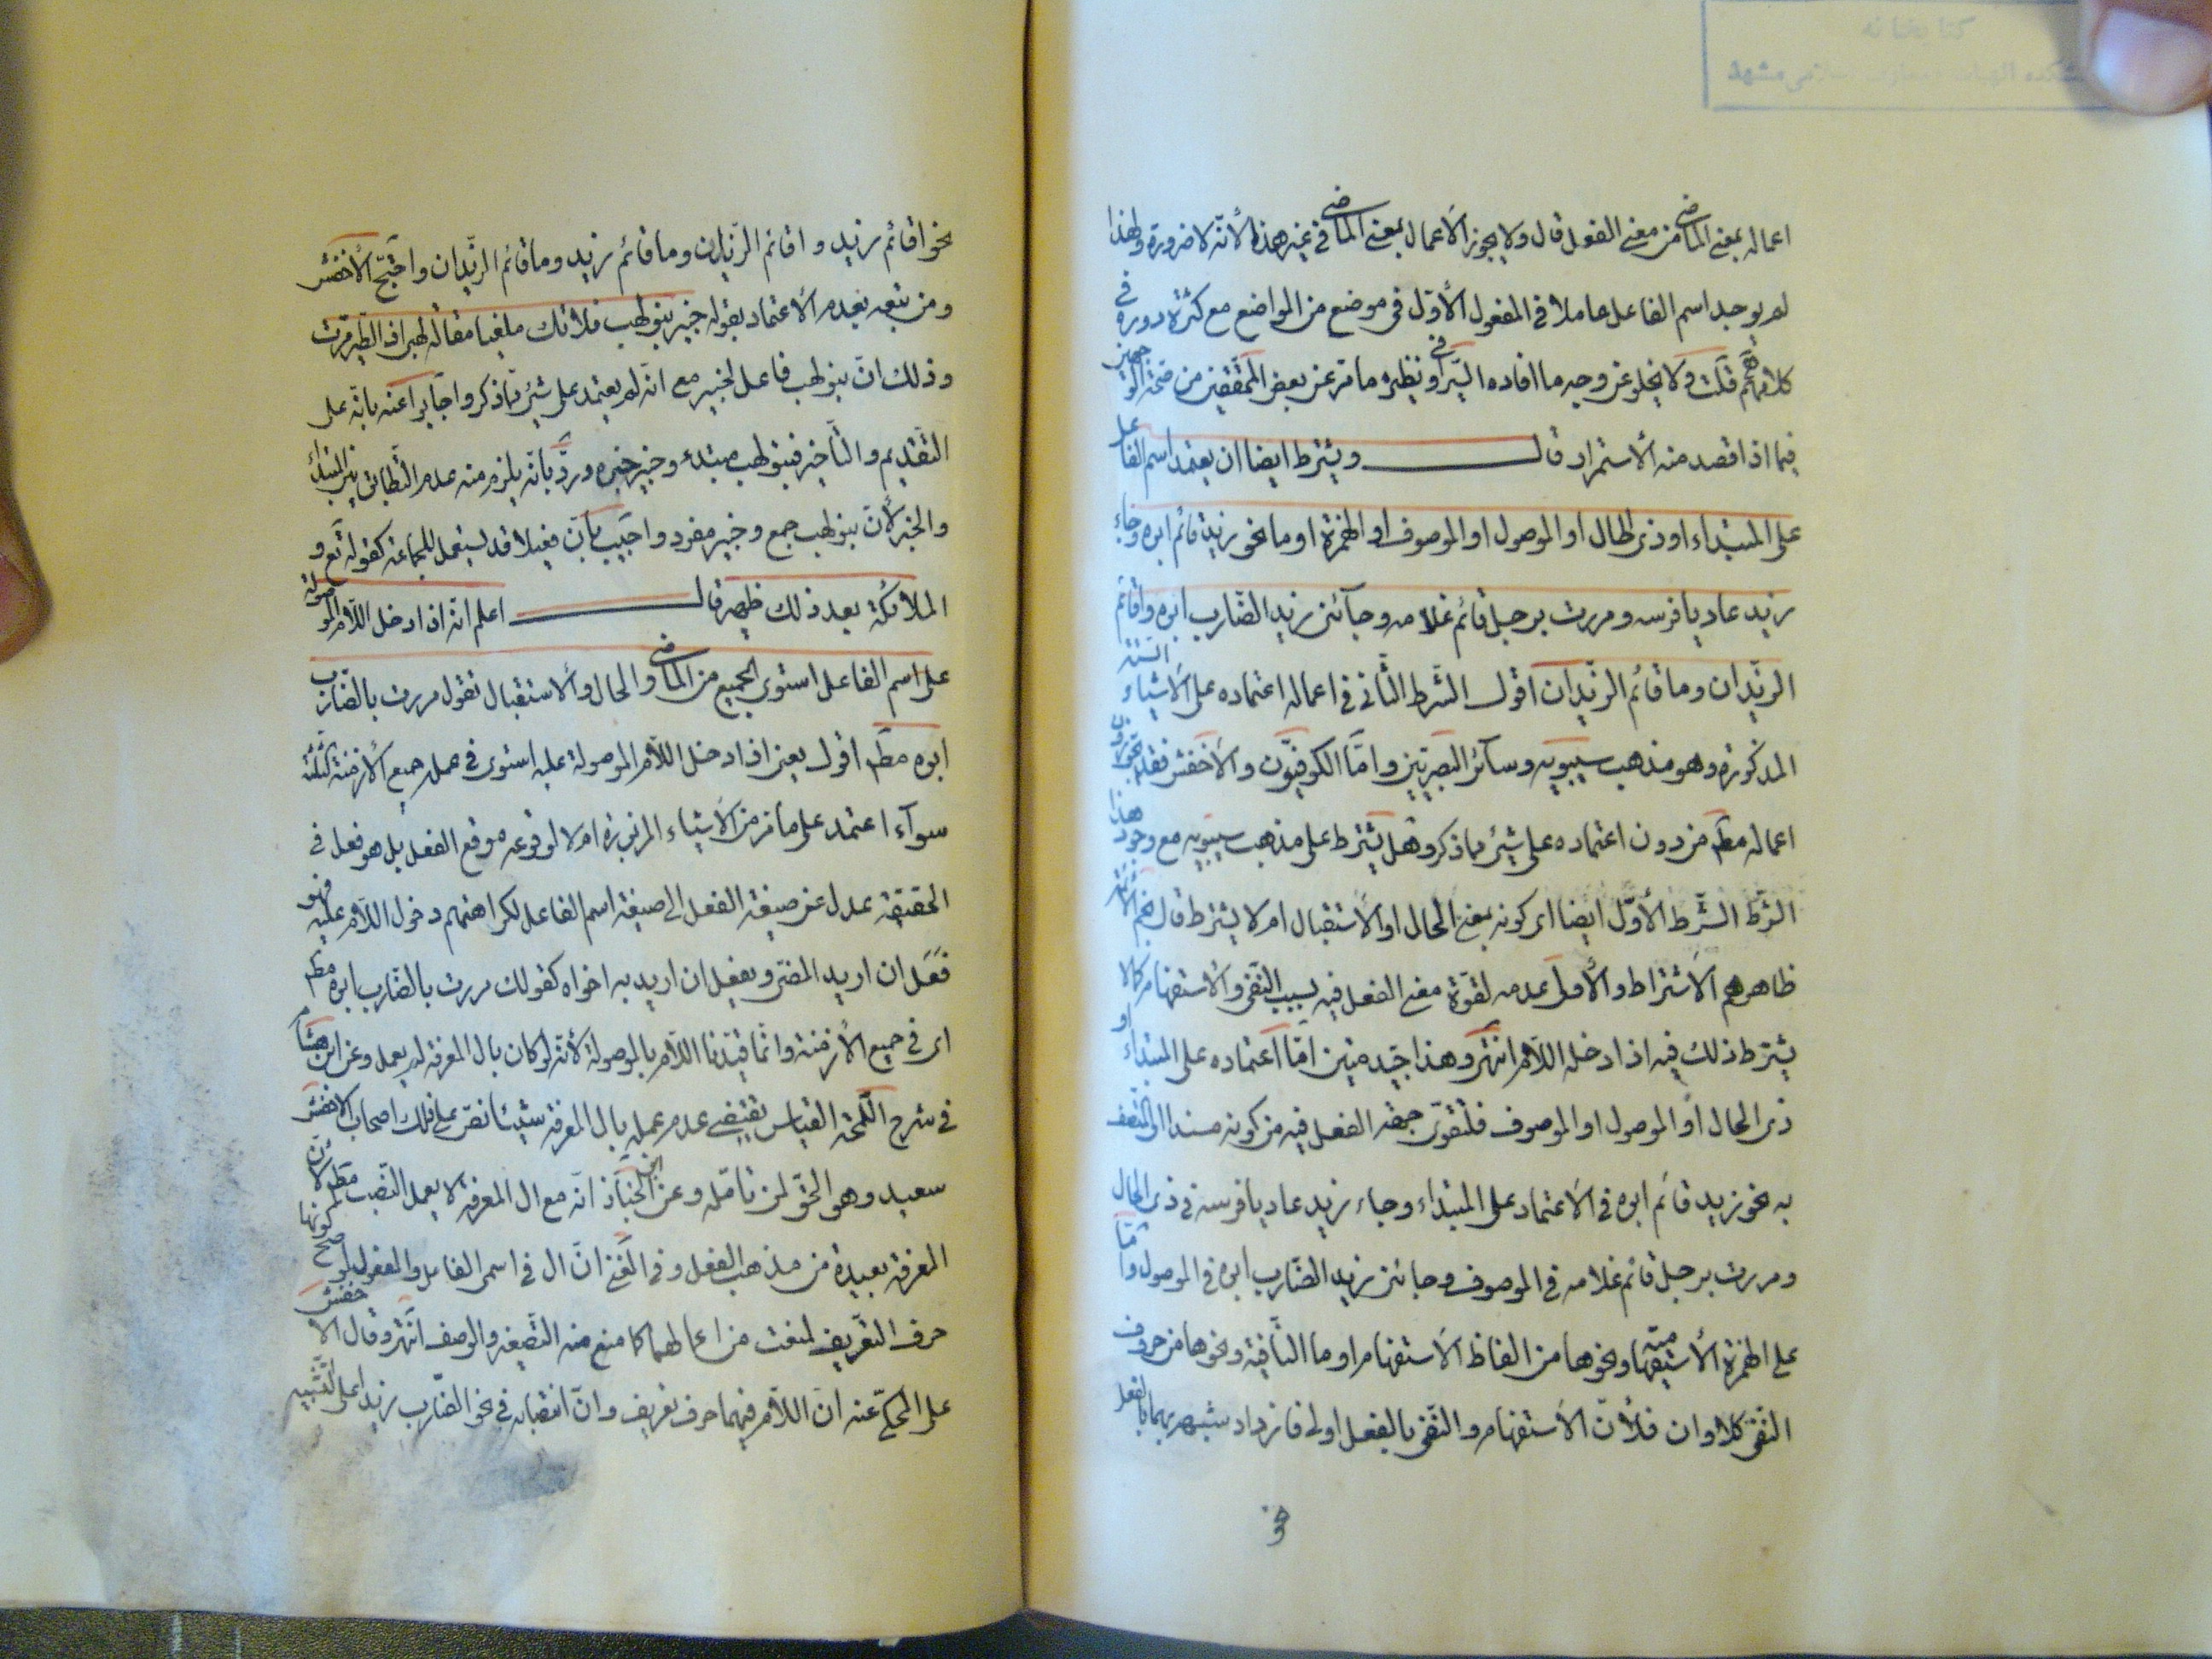 كتابخانه
دانشكده الهيات ومعارف اسلامى مشهد
اعماله بمعنى الماضى من معنى الفعل قال ولا يجوز الأعمال بمعنى الماضى فى غير هذه لأنّه لا ضرورة ولهذا
لم يوجد اسم الفاعل عاملا فى المفعول الأوّل فى موضع من المواضع مع كثرة دوره فى
كلامهم قلت ولا يخلو عن وجه ما افاده السيرافى ونظيره ما مرّ عن بعض المحققين من صحة الوجهين
فيما اذا قصد منه الأستمرار قال ويشترط ايضا ان يعتمد اسم الفاعل
على المبتداء او ذى الحال او الموصول او الموصوف او الهمزة او ما نحو زيد قائم ابوه وجاء
زيد عاديا فرسه ومررت برجل قائم غلامه وجائنى زيد الضّارب ابوه واقائم
الزيدان وما قائم الزيدان اقول الشّرط الثّانى فى اعماله اعتماده على الأشياء الستّة
المذكورة وهو مذهب سيبويه وسآئر البصريّين وامّا الكوفيّون والأخفش فقد يجوزون
اعماله مط من دون اعتماده على شئ مما ذكر وهل يشترط على مذهب سيبويه مع وجود هذا
الشّرط الشّرط الأوّل ايضا اى كونه بمعنى الحال او الأستقبال ام لا يشترط قال نجم الأئمّة
ظاهرهم الأشتراط والأولى عدمه لقوّة معنى الفعل فيه بسبب النّفى والأستفهام كما لا
يشترط ذلك فيه اذا دخله اللّام انتهى وهذا جيّد متين امّا اعتماده على المبتداء او
ذى الحال او الموصول او الموصوف فلتقوّى جهة الفعل فيه من كونه مسندا الى المتّصف
به نحو زيد قائم ابوه فى الأعتماد على المبتداء وجاء زيد عاديا فرسه فى ذى الحال
ومررت برجل قائم غلامه فى الموصوف وجائنى زيد الضّارب ابوه فى الموصول وامّا
على الهمزة الأستفهاميّة ونحوها من الفاظ الأستفهام او ما النّافية ونحوها من حروف
النّفى كلا وان فلأنّ الأستفهام والنّفى بالفعل اولى فازداد شبهه بهما بالفعل
نحو
نحو اقائم زيد واقائم الزيدان وما قائم زيد وما قائم الزيدان واحتجّ الأخفش
ومن تبعه بعدم الأعتماد بقوله خبير بنو لهب فلا تك ملغيا مقالة لهبى اذا الطّير مرّت
وذلك انّ بنو لهب فاعل لخبير مع انّه لم يعتمد على شئ ممّا ذكر واجابوا عنه بانّه على
التّقديم والتّأخير فبنو لهب مبتدء وخبير خبره وردّ بانّه يلزم منه عدم التّطابق بين المبتداء
والخبر لأنّ بنو لهب جمع وخبير مفرد واجيب بانّ فعيلا قد يستعمل للجماعة كقوله تع و
الملائكة بعد ذلك ظهير قال اعلم انّه اذا دخل اللّام الموصولة
على اسم الفاعل استوى الجميع من الماضى والحال والأستقبال تقول مررت بالضّارب
ابوه مط اقول يعنى اذا دخل اللّام الموصولة عليه استوى فى عمله جميع الأزمنة الثّلثة
سوآء اعتمد على ما مرّ من الأشياء المزبورة ام لا لوقوعه موقع الفعل بل هو فعل فى
الحقيقة عدل عن صيغة الفعل الى صيغة اسم الفاعل لكراهتهم دخول اللّام عليه فهو
فَعَل ان اريد المضى ويفعل ان اريد به اخواه كقولك مررت بالضّارب ابوه مط
اى فى جميع الأزمنة وانّما قيّدنا اللّام بالموصولة لأنّه لو كان بال المعرفة لم يعمل وعن ابن هشام
فى شرح اللّمحة القياس يقتضى عدم عمله بال المعرفة شيئا نصّ على ذلك اصحاب الأخفش
سعيد وهو الحقّ لمن تأمّله وعن ابن الخبّاز انّه مع ال المعرفة لا يعمل النّصب مط لأنّ
المعرفة بعيدة من مذهب الفعل وفى المغنى انّ ال فى اسمى الفاعل والمفعول لو صح كونها
حرف التّعريف لمنعت من اعمالهما كما منع منه التّصغير والوصف انتهى وقال الأخفش
على المحكىّ عنه انّ اللّام فيهما حرف تعريف وانّ انتصابه فى نحو الضّارب زيدا على التّشبيه